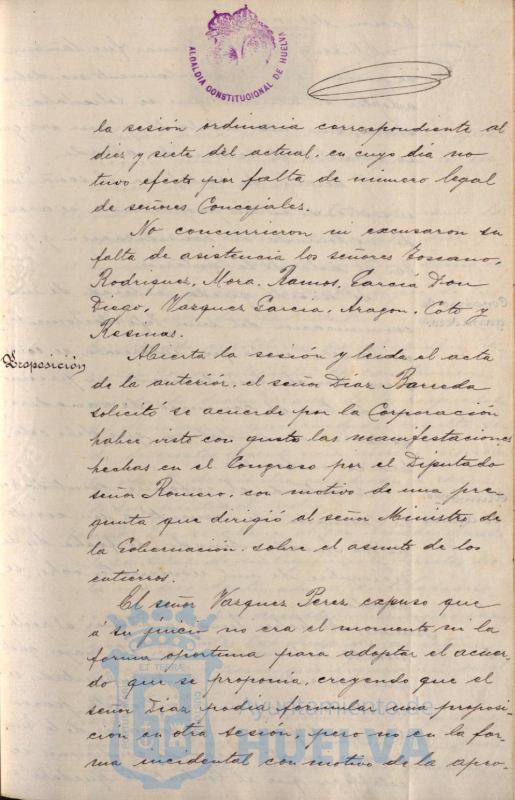 ALCALDIA CONSTITUCIONAL DE HUELVA
la sesión ordinaria correspondiente al
diez y siete del actual, en cuyo dia no
tuvo efecto por falta de número legal
de señores Concejales.
No concurrieron ni excusaron su
falta de asistencia los señores Toscano,
Rodriguez, Mora, Ramos, García Don
Diego, Vazquez García, Aragon, Coto y
Resinas.
Proposición
Abierta la sesión y leida el acta
de la anteriór, el señor Díaz Barreda
solicitó se acuerde por la Corporación
haber visto con gusto las manifestaciones
hechas en el Congreso por el Diputado
señor Romero, con motivo de una pre-
gunta que dirigió al señor Ministro de
la Gobernación, sobre el asunto de los
entierros.
El señor Vazquez Perez expuso que
á su juicio no era el momento ni la
forma oportuna para adoptar el acuer-
do que se proponia, creyendo que el
señor Díaz podia formular una proposi-
ción en otra sesión, pero no en la for-
ma incidental con motivo de la apro-
Ayuntamiento de
HUELVA